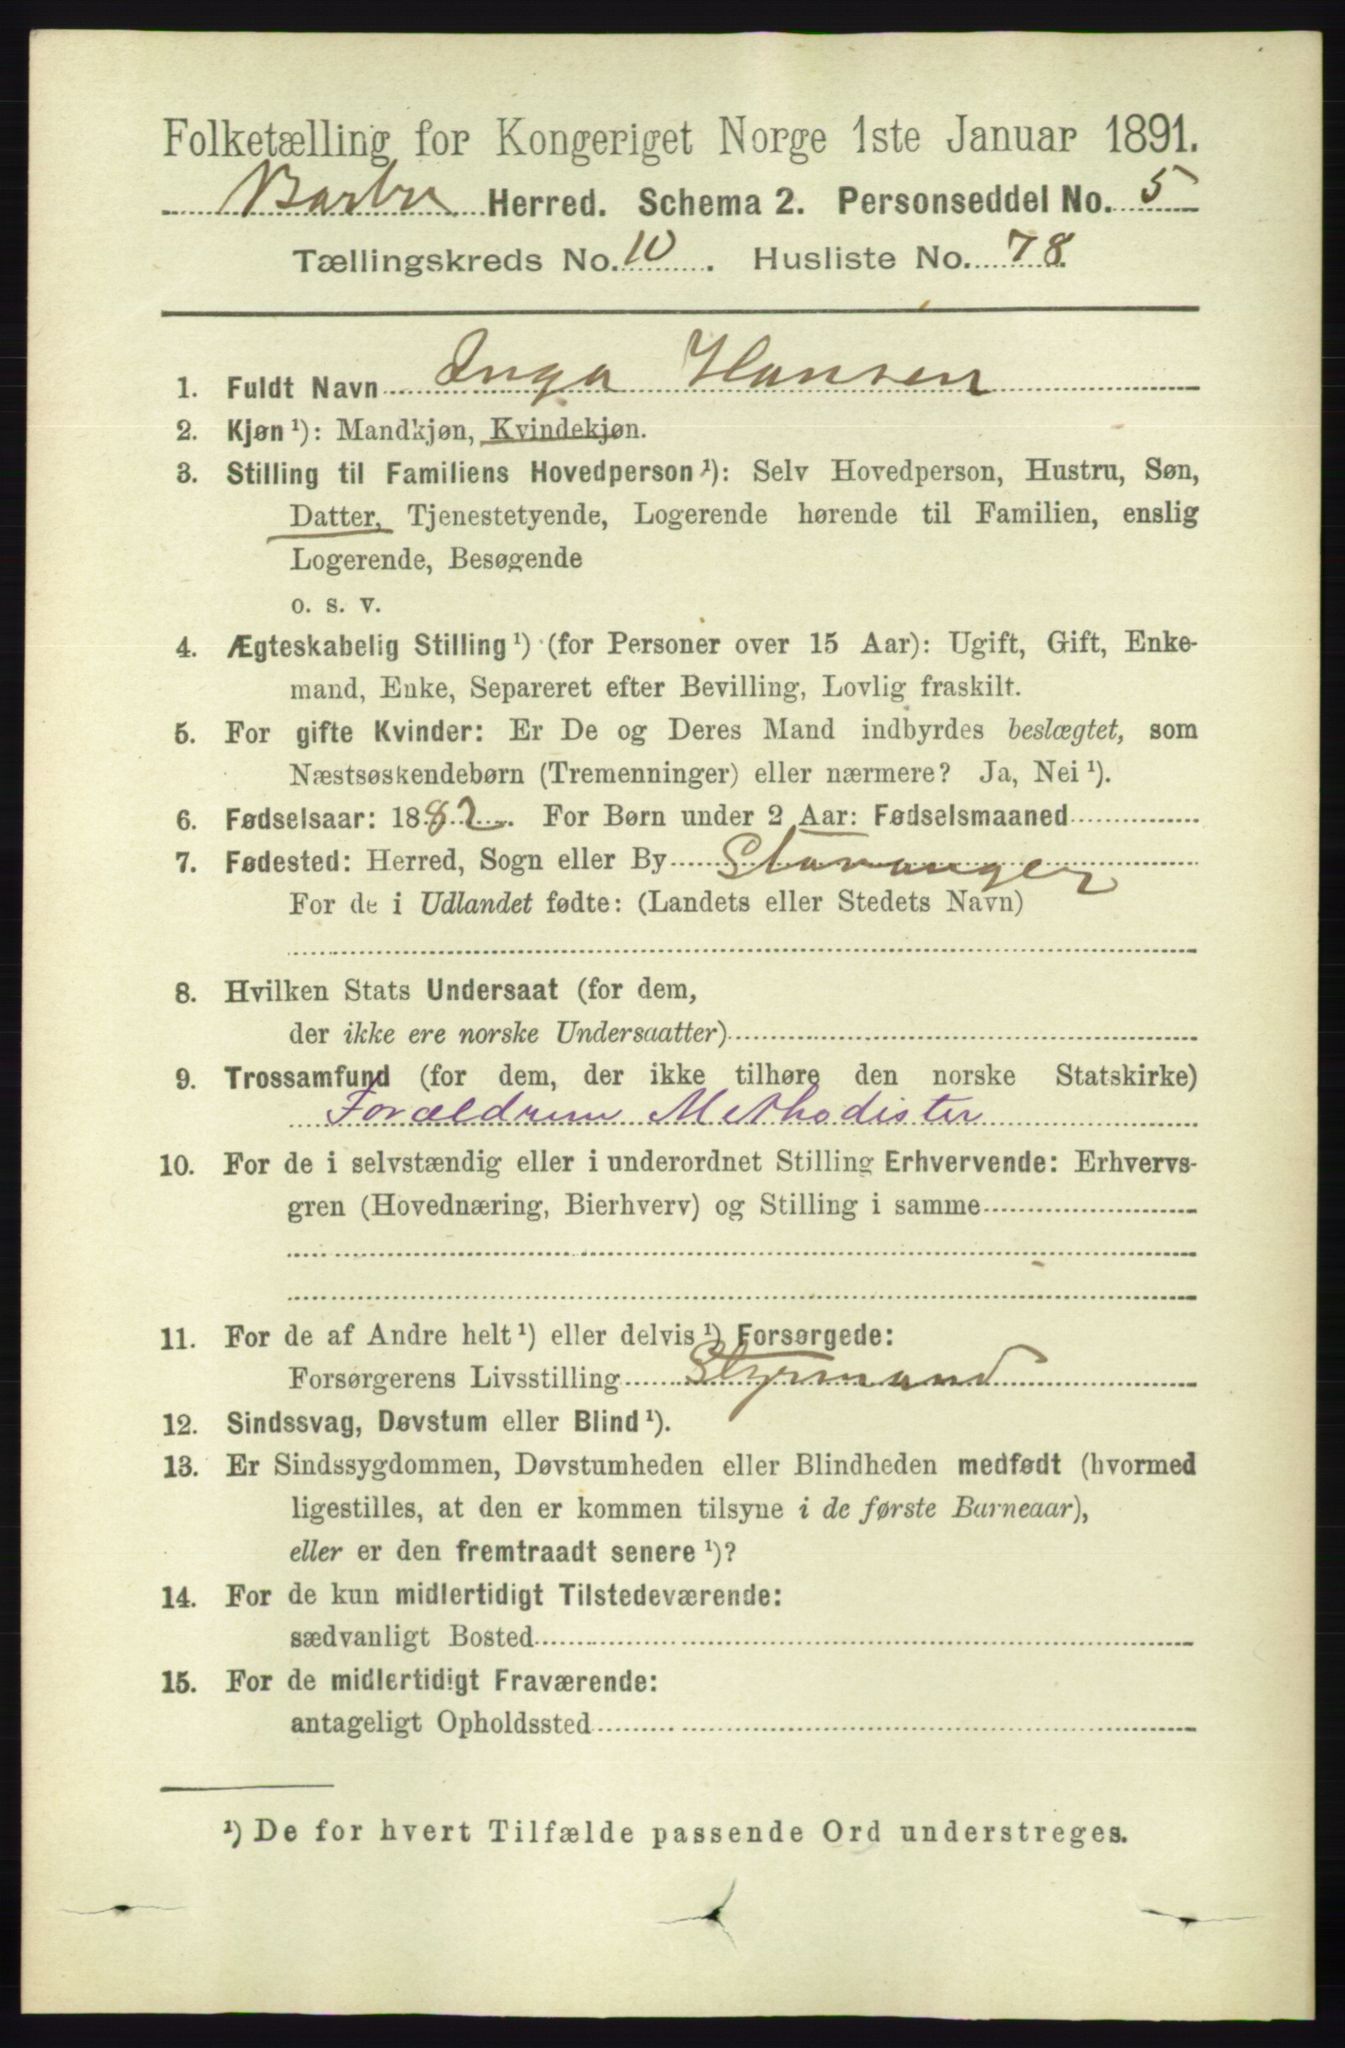 Folketælling for Kongeriget Norge 1ste Januar 1891.
Barbu Herred. Schema 2. Personseddel No. 5
Tællingskreds No. 10. Husliste No. 78.
1. Fuldt Navn Inga Hansen
2. Kjøn ¹): Mandkjøn, Kvindekjøn.
3. Stilling til Familiens Hovedperson ¹): Selv Hovedperson, Hustru, Søn,
Datter, Tjenestetyende, Logerende hørende til Familien, enslig
Logerende, Besøgende
o. s. v.
4. Ægteskabelig Stilling ¹) (for Personer over 15 Aar): Ugift, Gift, Enke-
mand, Enke, Separeret efter Bevilling, Lovlig fraskilt.
5. For gifte Kvinder: Er De og Deres Mand indbyrdes beslægtet, som
Næstsøskendebørn (Tremenninger) eller nærmere? Ja, Nei ¹).
6. Fødselsaar: 1882. For Børn under 2 Aar: Fødselsmaaned
7. Fødested: Herred, Sogn eller By Stavanger
For de i Udlandet fødte: (Landets eller Stedets Navn)
8. Hvilken Stats Undersaat (for dem,
der ikke ere norske Undersaatter)
9. Trossamfund (for dem, der ikke tilhøre den norske Statskirke)
Forældrene Methodister
10. For de i selvstændig eller i underordnet Stilling Erhvervende: Erhvervs-
gren (Hovednæring, Bierhverv) og Stilling i samme
11. For de af Andre helt ¹) eller delvis ¹) Forsørgede:
Forsørgerens Livsstilling Styrmand
12. Sindssvag, Døvstum eller Blind ¹).
13. Er Sindssygdommen, Døvstumheden eller Blindheden medfødt (hvormed
ligestilles, at den er kommen tilsyne i de første Barneaar),
eller er den fremtraadt senere ¹)?
14. For de kun midlertidigt Tilstedeværende:
sædvanligt Bosted
15. For de midlertidigt Fraværende:
antageligt Opholdssted
¹) De for hvert Tilfælde passende Ord understreges.